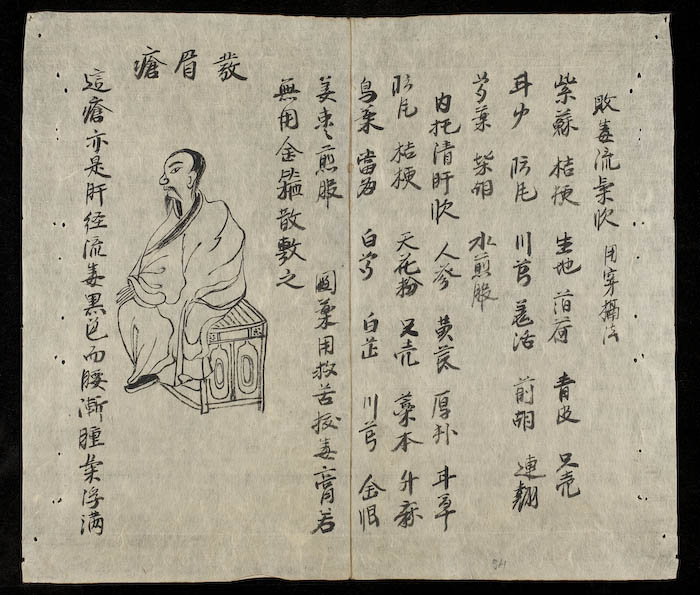 敗毒流氣飲 用穿法
紫蘇 桔梗 生地 泊荷 青皮 只壳
甘 防风 川芎 羌活 前胡 連翹
葉 柴胡 水煎服
内托清肝飲 人參 黄芪 厚朴 甘草
防风 桔梗 天花粉 只壳 藁本 升麻
烏藥 當归 白芍 白芷 川芎 金银
姜枣煎服 圍藥用救苦拔毒膏若
無用金箍散敷之
發眉瘡
這瘡亦是肝经流毒黑色而腰漸腫氣浮满